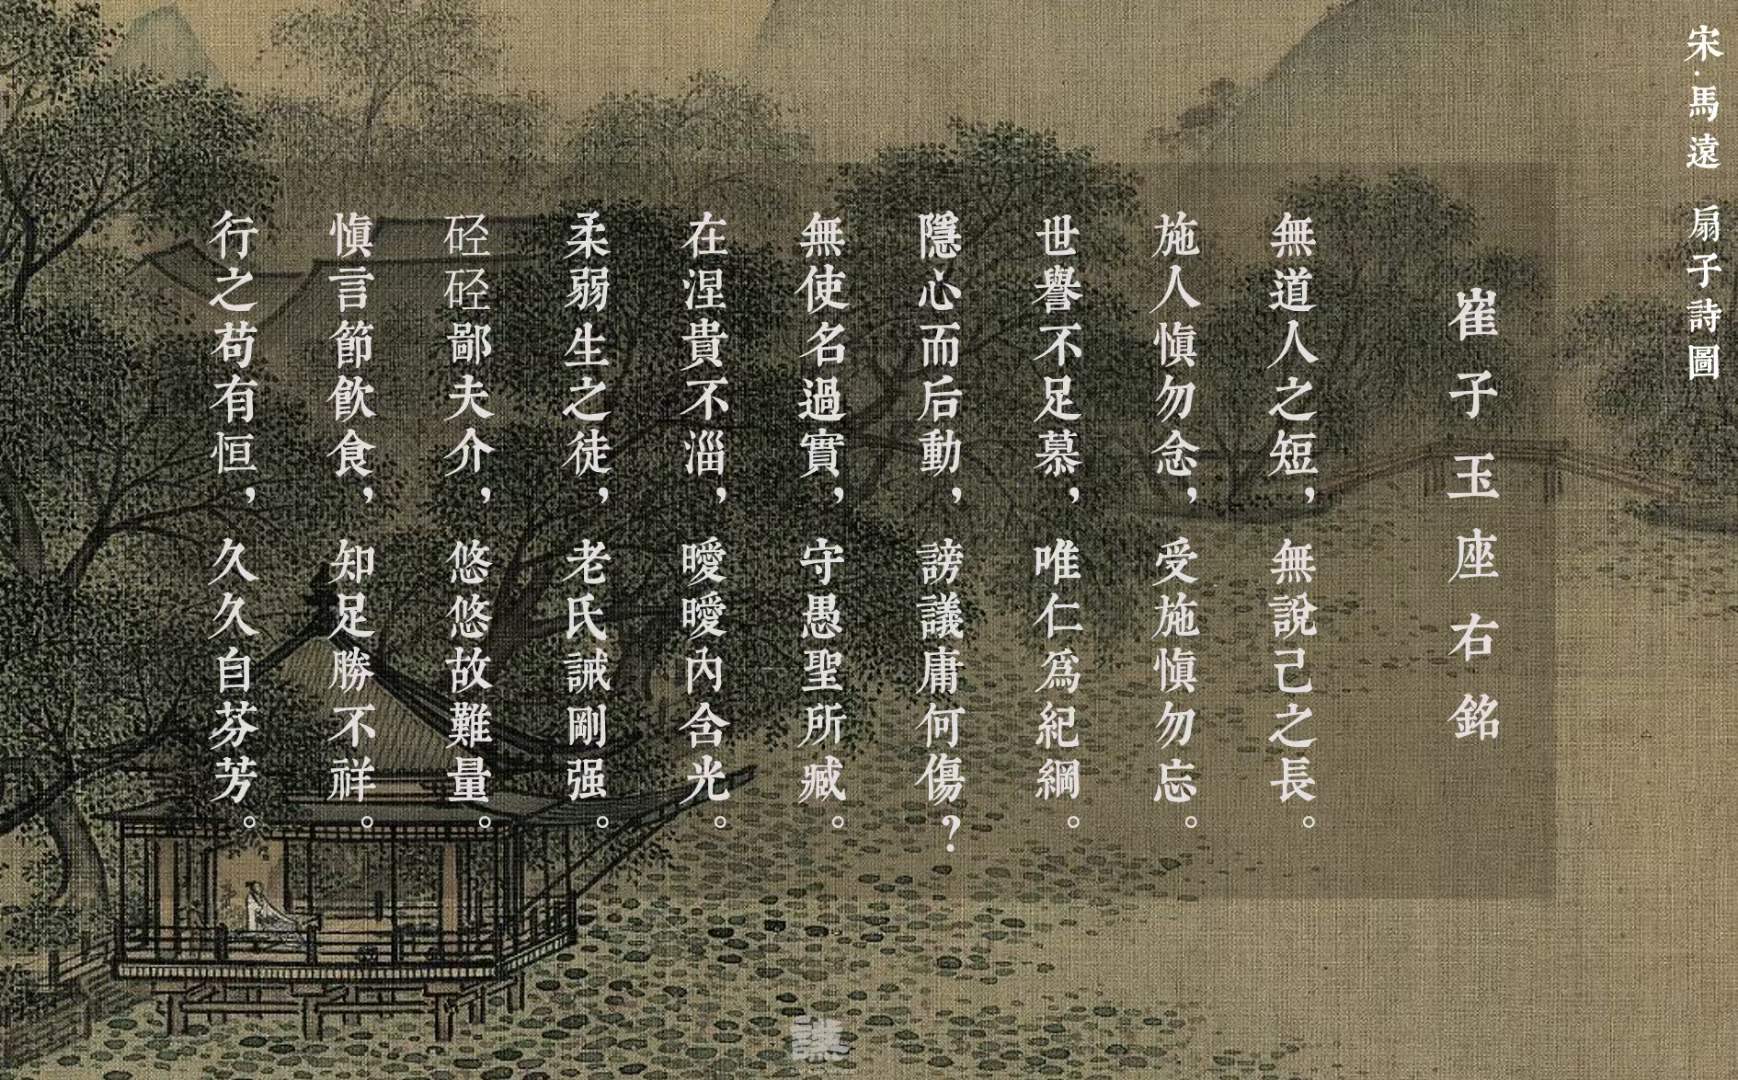 宋·馬遠 扇子詩圖
崔子玉座右銘
無道人之短，無說己之長。
施人慎勿念，受施慎勿忘。
世譽不足慕，唯仁爲紀綱。
隱心而后動，謗議庸何傷？
無使名過實，守愚聖所臧。
在涅貴不淄，曖曖內含光。
柔弱生之徒，老氏誡剛强。
硁硁鄙夫介，悠悠故難量。
慎言節飲食，知足勝不祥。
行之苟有恒，久久自芬芳。